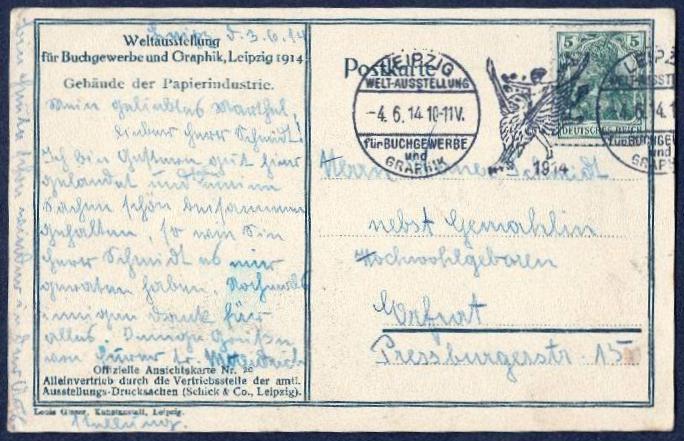 Leipz. d. 3.6.14
Weltausstellung
für Buchgewerbe und Graphik, Leipzig 1914
Gebäude der Papierindustrie.
Mein geliebtes Marthel,
lieber Herr Schmidt!
Ich bin gestern gut hier
gelandet und
Sachen schön beisammen
gehalten, so wie Sie
Herr Schmidt es mir
geraten haben. Nochmals
innigen Dank für
alles. Innige Grüße
von Eurer tr.
Offizielle Ansichtskarte Nr. 20
Alleinvertrieb durch die Vertriebsstelle der amtl.
Ausstellungs-Drucksachen (Schick & Co., Leipzig).
Louis Glaser, Kunstanstalt, Leipzig.
Postkarte
LEIPZIG
WELT-AUSSTELLUNG
-4.6.14 10-11V.
für BUCHGEWERBE
und
GRAPHIK
1914
5 5
DEUTSCHES REICH
LEIPZ
WELT-AUSST
14.1
für BUCHGEW
und
GRAPH
Herrn Schmidt
nebst Gemahlin
Hochwohlgeboren
Erfurt
Pressburgerstr. 15